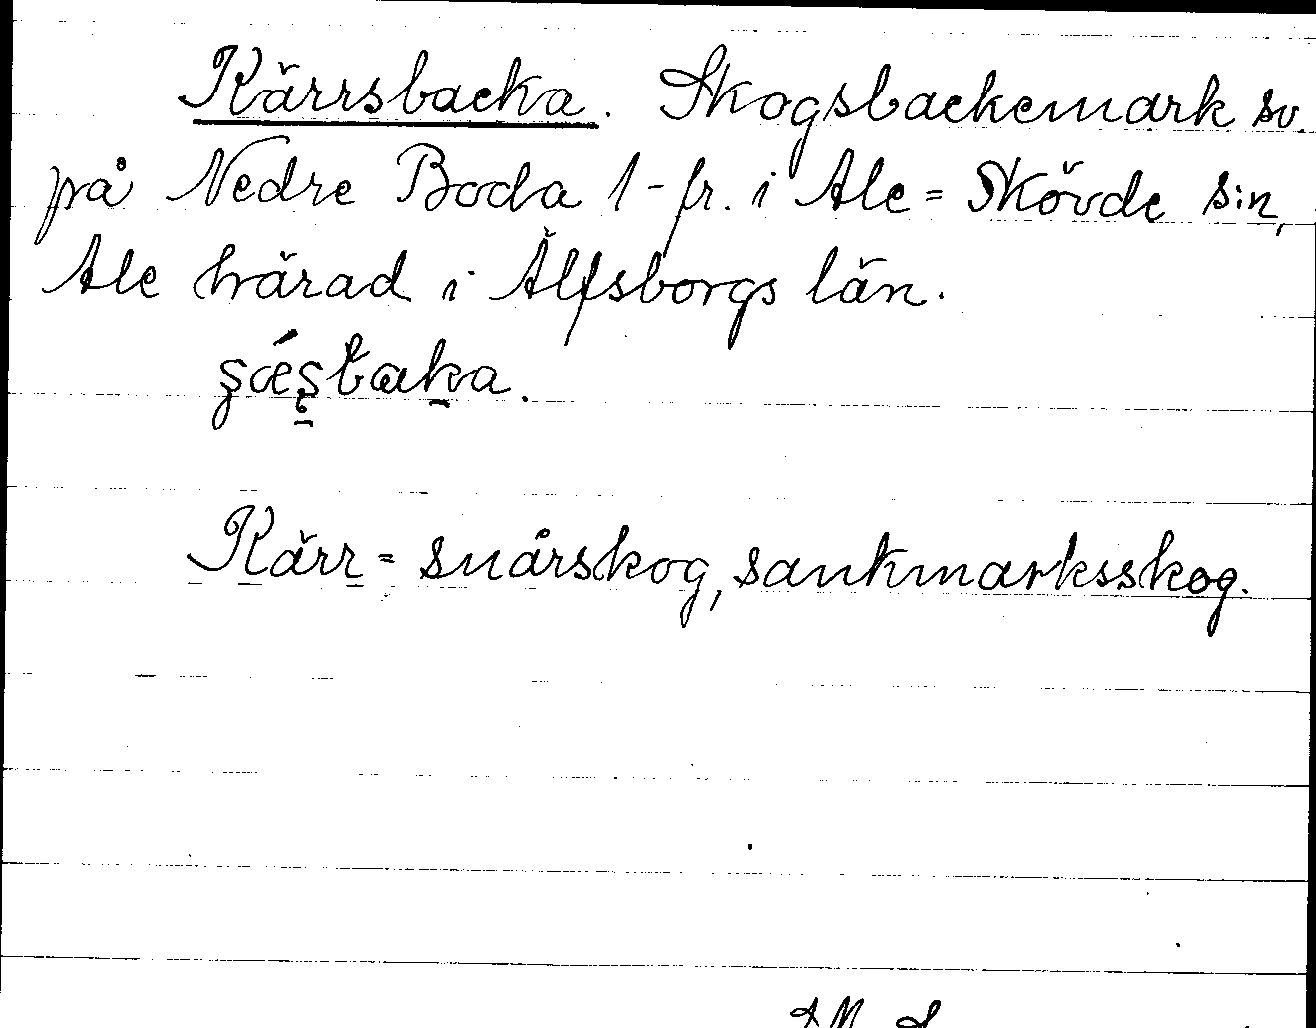 Kärrsbacka. Skogsbackemark sv.
på Nedre Boda 1-fr. i Ale=Skövde s:n,
Ale härad i Älfsborgs län.
Kärr = snårskog, sankmarksskog.